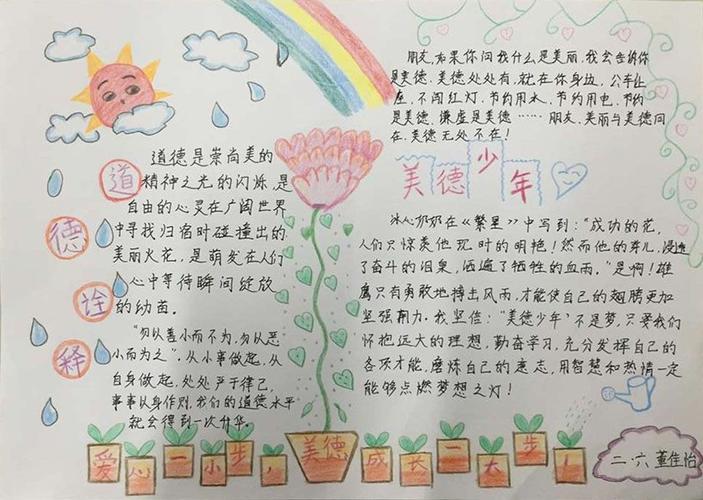 道德诠释
道德是崇尚美的
精神之光的闪烁，是
自由的心灵在广阔世界
中寻找归宿时碰撞出的
美丽火花，是萌发在人们
心中等待瞬间绽放
的幼苗。
“勿以善小而不为，勿以恶
小而为之”。从小事做起，从
自身做起，处处严于律己，
事事以身作则，我们的道德水平
就会得到一次升华。
朋友，如果你问我什么是美丽，我会告诉你
是美德。美德处处有，就在你身边，公车让
座，不闯红灯，节约用水，节约用电，节约
是美德，谦虚是美德……朋友，美丽与美德同
在，美德无处不在！
美德少年
冰心奶奶在《繁星》中写到：“成功的花，
人们只惊羡他现时的明艳！然而他的芽儿，浸透
了奋斗的泪泉，洒遍了牺牲的血雨。”是啊！雄
鹰只有勇敢地搏击风雨，才能使自己的翅膀更加
坚强有力。我坚信：“美德少年”不是梦，只要我们
怀抱远大的理想，勤奋学习，充分发挥自己的
各项才能，磨炼自己的意志，用智慧和热情一定
能够点燃梦想之灯！
爱心一小步，美德成长一大步！
二.六 董佳怡